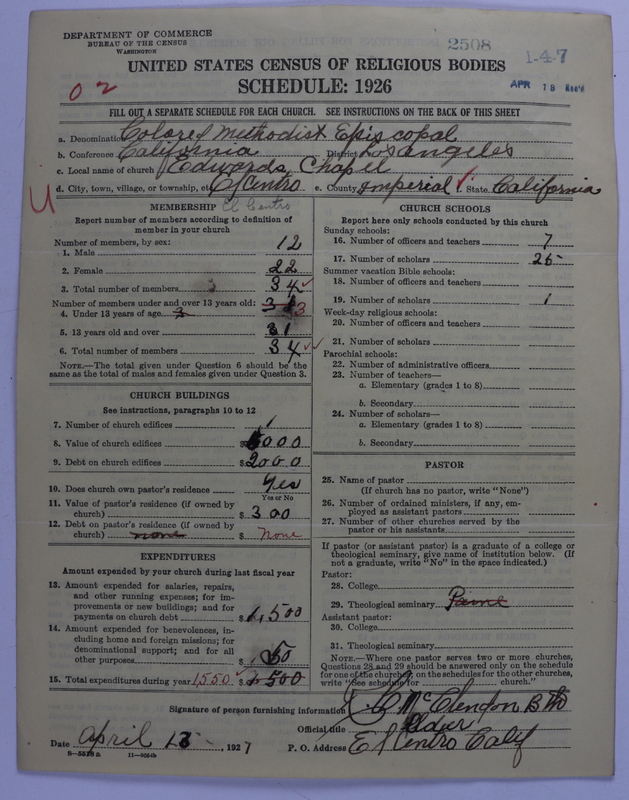 DEPARTMENT OF COMMERCE
BUREAU OF THE CENSUS
WASHINGTON
2508
1-4-7
APR 18 Rec'd
0 2
UNITED STATES CENSUS OF RELIGIOUS BODIES
SCHEDULE: 1926
FILL OUT A SEPARATE SCHEDULE FOR EACH CHURCH. SEE INSTRUCTIONS ON THE BACK OF THIS SHEET
a. Denomination Colored Methodist Episcopal
b. Conference California District Los Angeles
c. Local name of church Edwards Chapel
d. City, town, village, or township, etc. El Centro e. County Imperial State California
U
MEMBERSHIP El Centro
Report number of members according to definition of
member in your church
Number of members, by sex:
1. Male 12
2. Female 22
3. Total number of members 34 ✓
Number of members under and over 13 years old:
4. Under 13 years of age 3 3
5. 13 years old and over 31
6. Total number of members 34 ✓✓
NOTE.—The total given under Question 6 should be the
same as the total of males and females given under Question 3.
CHURCH BUILDINGS
See instructions, paragraphs 10 to 12
7. Number of church edifices 1
8. Value of church edifices $ 6000
9. Debt on church edifices $ 2000
10. Does church own pastor's residence Yes
Yes or No
11. Value of pastor's residence (if owned by
church) $ 300
12. Debt on pastor's residence (if owned by
church) none $ None
EXPENDITURES
Amount expended by your church during last fiscal year
13. Amount expended for salaries, repairs,
and other running expenses; for im-
provements or new buildings; and for
payments on church debt $ 1,500
14. Amount expended for benevolences, in-
cluding home and foreign missions; for
denominational support; and for all
other purposes $ 50
15. Total expenditures during year 1550 ✓ $ 1500
CHURCH SCHOOLS
Report here only schools conducted by this church
Sunday schools:
16. Number of officers and teachers 7
17. Number of scholars 25
Summer vacation Bible schools:
18. Number of officers and teachers
19. Number of scholars 1
Week-day religious schools:
20. Number of officers and teachers
21. Number of scholars
Parochial schools:
22. Number of administrative officers
23. Number of teachers—
a. Elementary (grades 1 to 8)
b. Secondary
24. Number of scholars—
a. Elementary (grades 1 to 8)
b. Secondary
PASTOR
25. Name of pastor
(If church has no pastor, write "None")
26. Number of ordained ministers, if any, em-
ployed as assistant pastors
27. Number of other churches served by the
pastor or his assistants
If pastor (or assistant pastor) is a graduate of a college or
theological seminary, give name of institution below. (If
not a graduate, write "No" in the space indicated.)
Pastor:
28. College
29. Theological seminary Paine
Assistant pastor:
30. College
31. Theological seminary
NOTE.—Where one pastor serves two or more churches,
Questions 28 and 29 should be answered only on the schedule
for one of the churches; on the schedules for the other churches,
write "See schedule for church."
Signature of person furnishing information C McClendon
Official title Elder
Date April 13 1927 P. O. Address El Centro Calif
11—9264b